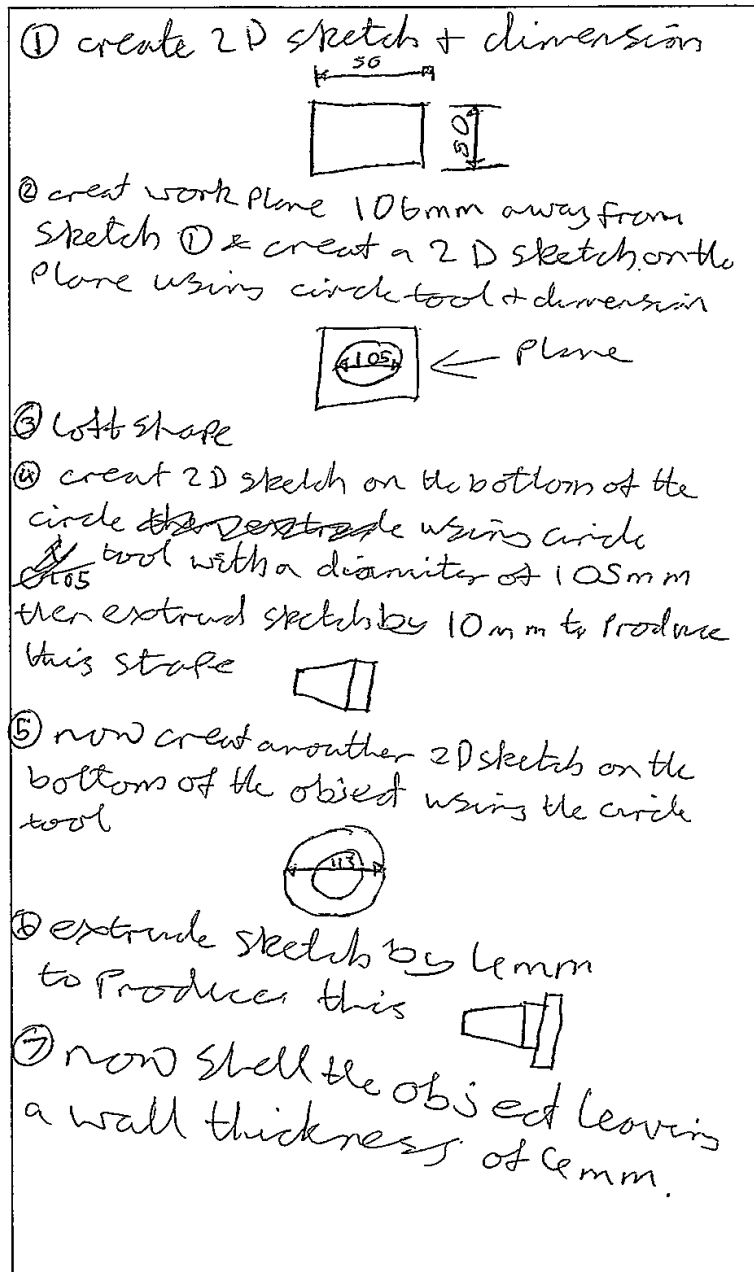 ① create 2D sketch + dimension
50
50
② creat work plane 106mm away from
sketch ① & creat a 2D sketch on the
plane using circle tool + dimension
105
← Plane
③ loft shape
④ creat 2D sketch on the bottom of the
circle using circle
tool with a diamiter of 105mm
then extrud sketch by 10mm to produce
this shape
⑤ now creat anouther 2D sketch on the
bottom of the object using the circle
tool
113
⑥ extrude sketch by 4mm
to Produce this
⑦ now shell the object leaving
a wall thickness of 4mm.